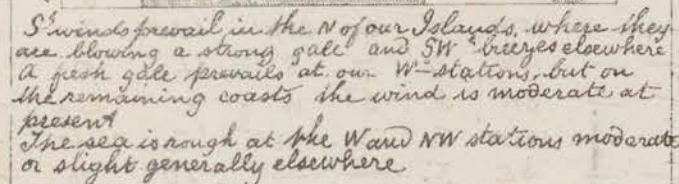 Sly winds prevail in the N of our Islands, where they
are blowing a strong gale and SWly breezes elsewhere
A fresh gale prevails at our W-stations, but on
the remaining coasts the wind is moderate at
present
The sea is rough at the W and NW stations moderate
or slight generally elsewhere